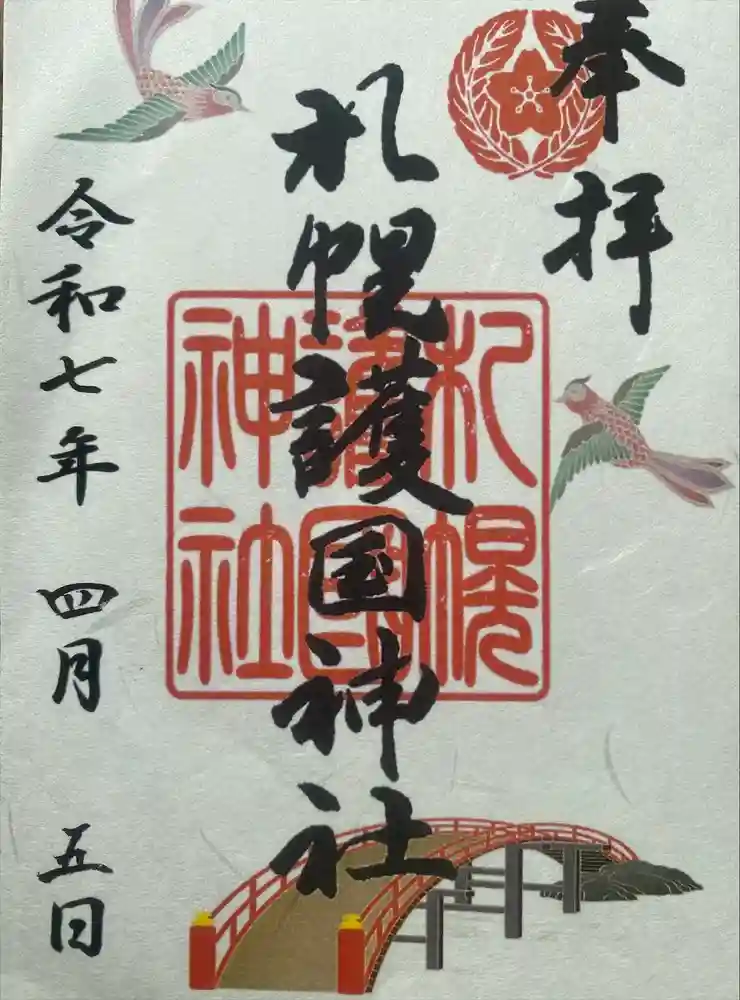 奉拝
札幌護国神社
札幌
護國
神社
令和七年 四月 五日